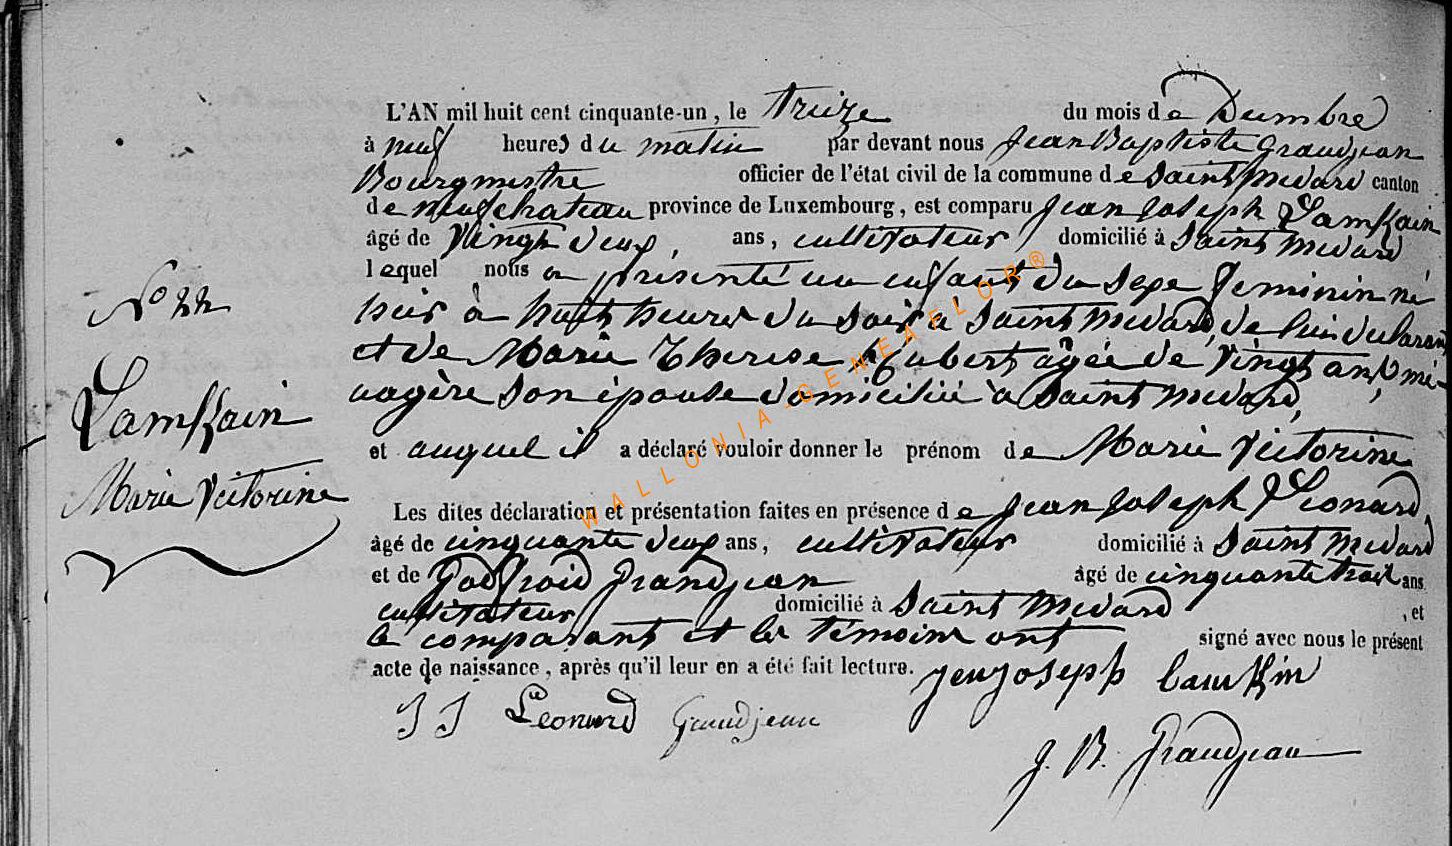 L'AN mil huit cent cinquante-un, le treize du mois de Decembre
à neuf heures du matin par devant nous Jean Baptiste Grandjean
Bourgmestre officier de l'état civil de la commune de Saint Medard canton
de neufchateau province de Luxembourg, est comparu Jean Joseph Lamkain
âgé de vingt deux, ans, cultivateur domicilié à Saint Medard
lequel nous a présenté un enfant du sexe feminin né
hier à huit heures du soir à Saint Medard, de lui déclarant
et de Marie Therese Hubert âgée de vingt ans, mé-
nagère son épouse domiciliée à Saint Medard,
et auquel il a déclaré vouloir donner le prénom de Marie Victorine
Les dites déclaration et présentation faites en présence de Jean Joseph Leonard,
âgé de cinquante deux ans, cultivateur domicilié à Saint Medard
et de Godfroid Grandjean âgé de cinquante trois ans
cultivateur domicilié à Saint Medard, et
le comparant et les témoins ont signé avec nous le présent
acte de naissance, après qu'il leur en a été fait lecture. Jen joseph Lamkin
J J Leonard Grandjean
J. B. Grandjean
No 22
Lamkain
Marie Victorine
WALLONIA-GENEAFLOR®